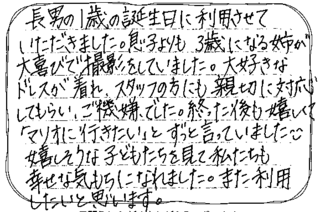 長男の1歳の誕生日に利用させて
いただきました。息子よりも3歳になる姉が
大喜びで撮影をしていました。大好きな
ドレスが着れ、スタッフの方にも親切に対応
してもらい、ご機嫌でした。終った後も嬉しくて
「マリオに行きたい」とずっと言っていました
嬉しそうな子どもたちを見て私たちも
幸せな気もちになれました。また利用
したいと思います。